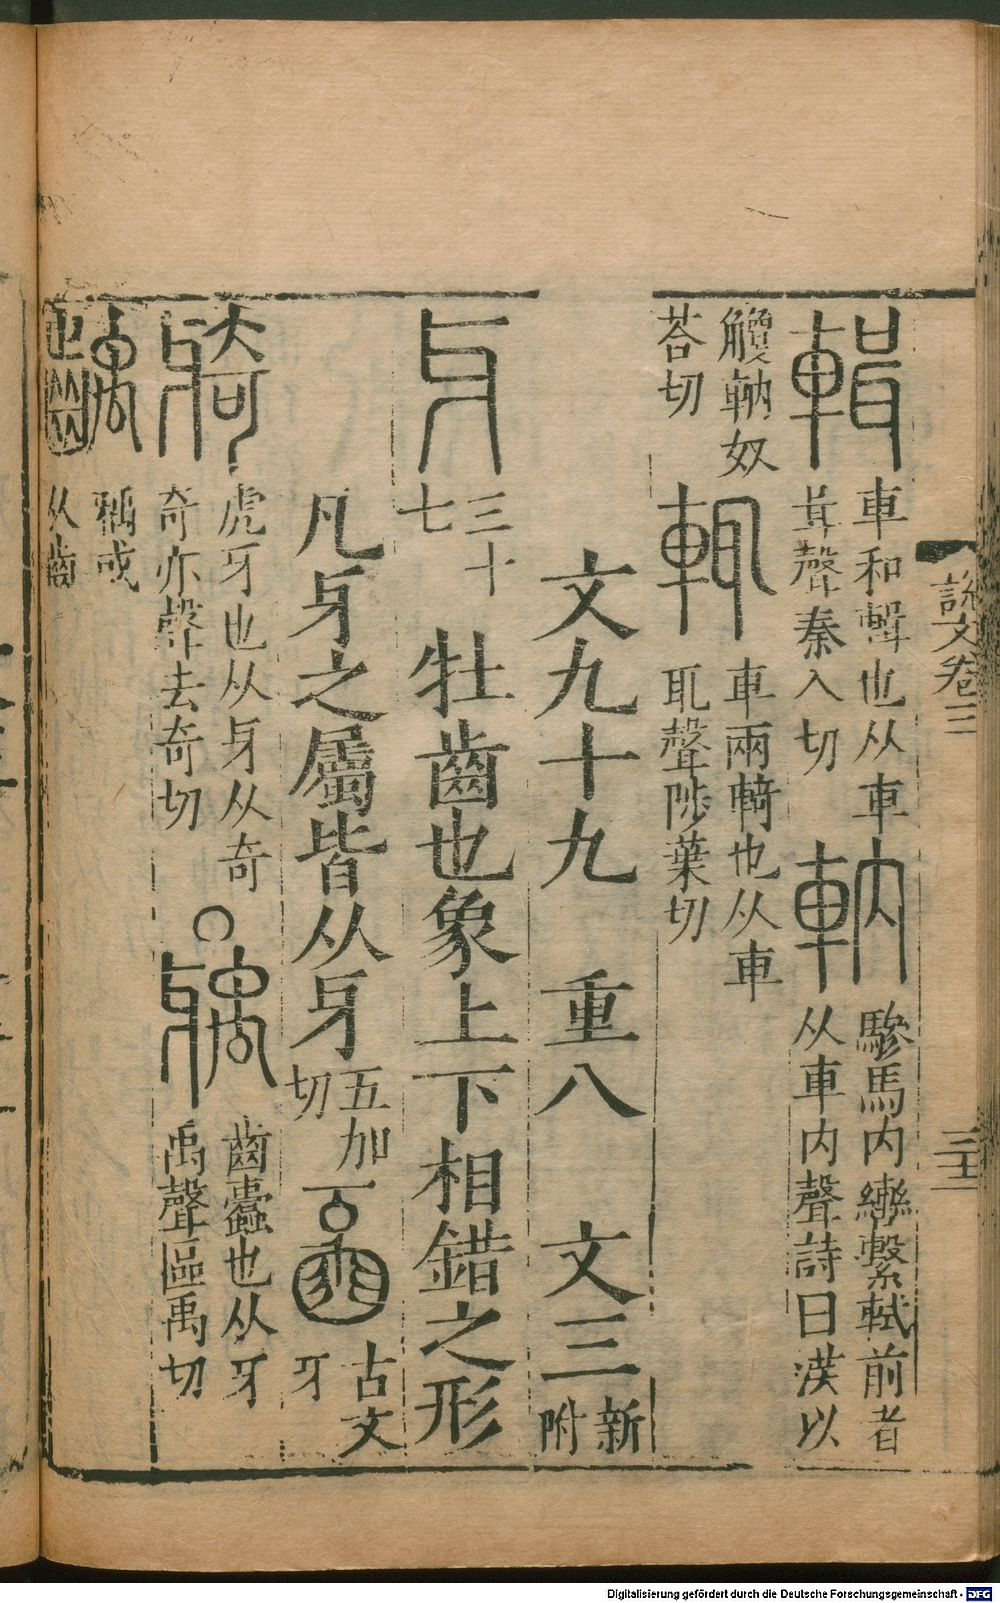 輯 車和輯也从車咠聲秦入切 軜 驂馬内轡繫軾前者从車内聲詩曰漢以
觼軜奴荅切 輒 車兩輢也从車耴聲陟葉切
文九十九 重八 文三新附
牙 三十七 牡齒也象上下相錯之形
凡牙之屬皆从牙五加切 古文牙
䝝 虎牙也从牙从奇奇亦聲去奇切 ○ 㻛 齒蠹也从牙禹聲區禹切
齲 㻛或从齒
説文卷三
Digitalisierung gefördert durch die Deutsche Forschungsgemeinschaft - DFG